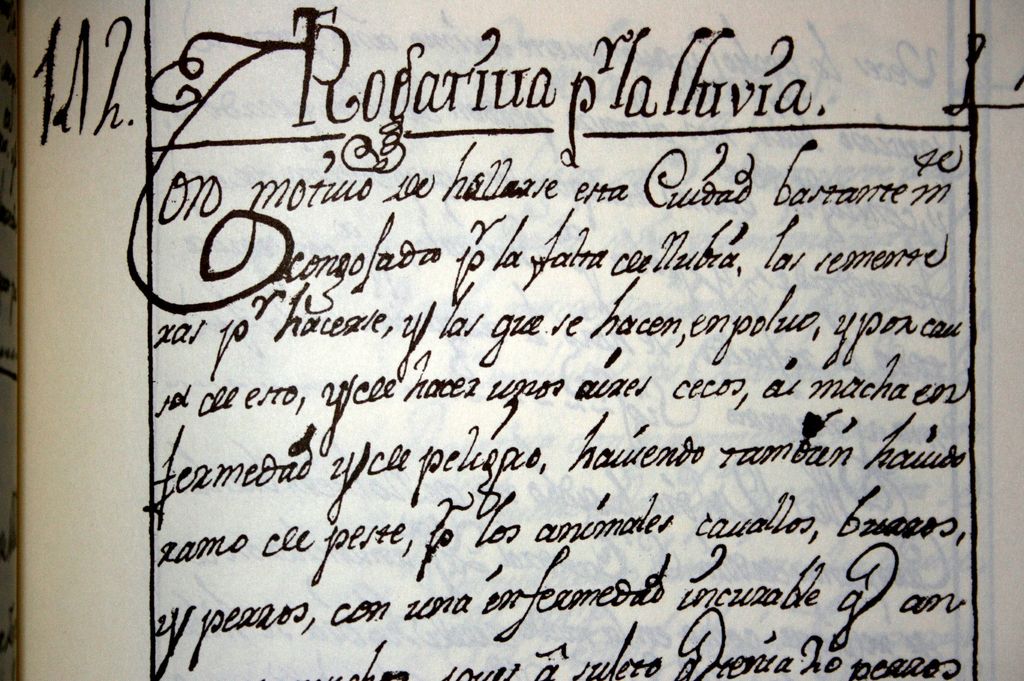 112.
Rogativa pr la lluvia.
CON motivo de hallarse esta Ciudad bastante mte
acongofada pr la falta de llubia, las semente
ras pr hacerse, y las que se hacen, en polvo, y por cau
sa de esto, y de hacer unos aires cecos, ai mucha en
fermedad y de peligro, haviendo tambien havido
ramo de peste, pr los animales cavallos, burros,
y perros, con una enfermedad incurable q an
muchos, pues a sujeto q tenia 20 perros